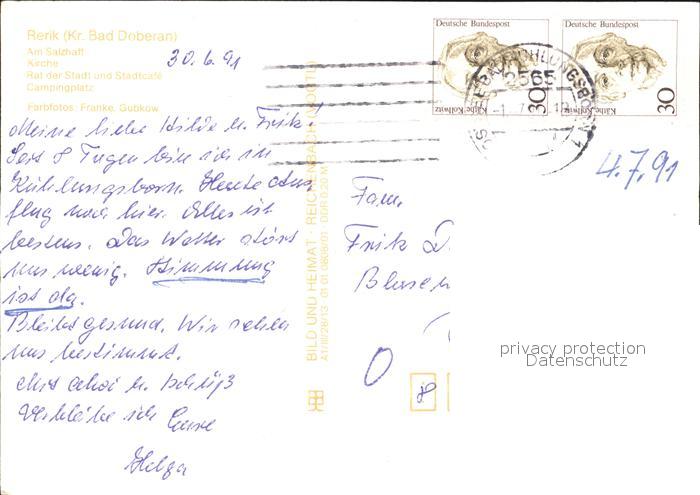 Rerik (Kr. Bad Doberan)
Am Salzhaff
Kirche
Rat der Stadt und Stadtcafé
Campingplatz
Farbfotos: Franke, Gubkow
30.6.91
Meine liebe Hilde u. Frik.
Seit 8 Tagen bin ich in
Kühlungsborn. Heute Aus-
flug nach hier. Alles ist
bestens. Das Wetter stört
uns wenig. Stimmung
ist da.
Bleibt gesund. Wir sehen
uns bestimmt.
Mit ahoi u. tschüß
verbleibe ich Eure
Helga
BILD UND HEIMAT · REICHENBACH (VOGTL)
A1/III/26/13 01 01 0808/01 DDR 0,20 M
Deutsche Bundespost
Käthe Kollwitz
30
Deutsche Bundespost
Käthe Kollwitz
30
OSTSEEBAD KÜHLUNGSBORN 1
2565
4.7.91
Fam.
Frik D.
Blusen
privacy protection
Datenschutz